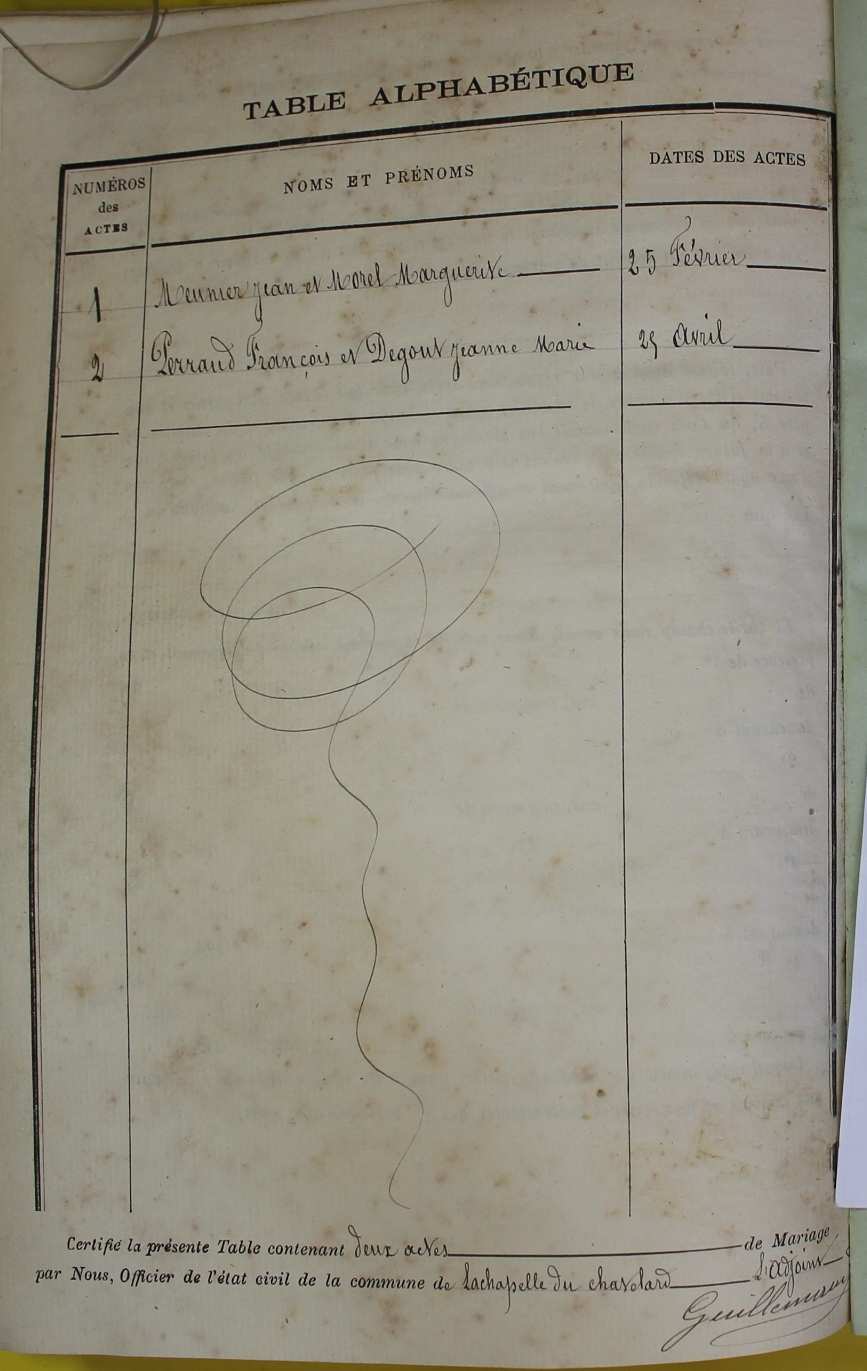 TABLE ALPHABÉTIQUE
NUMÉROS des ACTES NOMS ET PRÉNOMS DATES DES ACTES
1 Meunier Jean et Morel Marguerite 25 Février
2 Perraud François et Degout Jeanne Marie 25 Avril
Certifié la présente Table contenant deux actes de Mariage
par Nous, Officier de l'état civil de la commune de Lachapelle du chatelard L'Adjoint